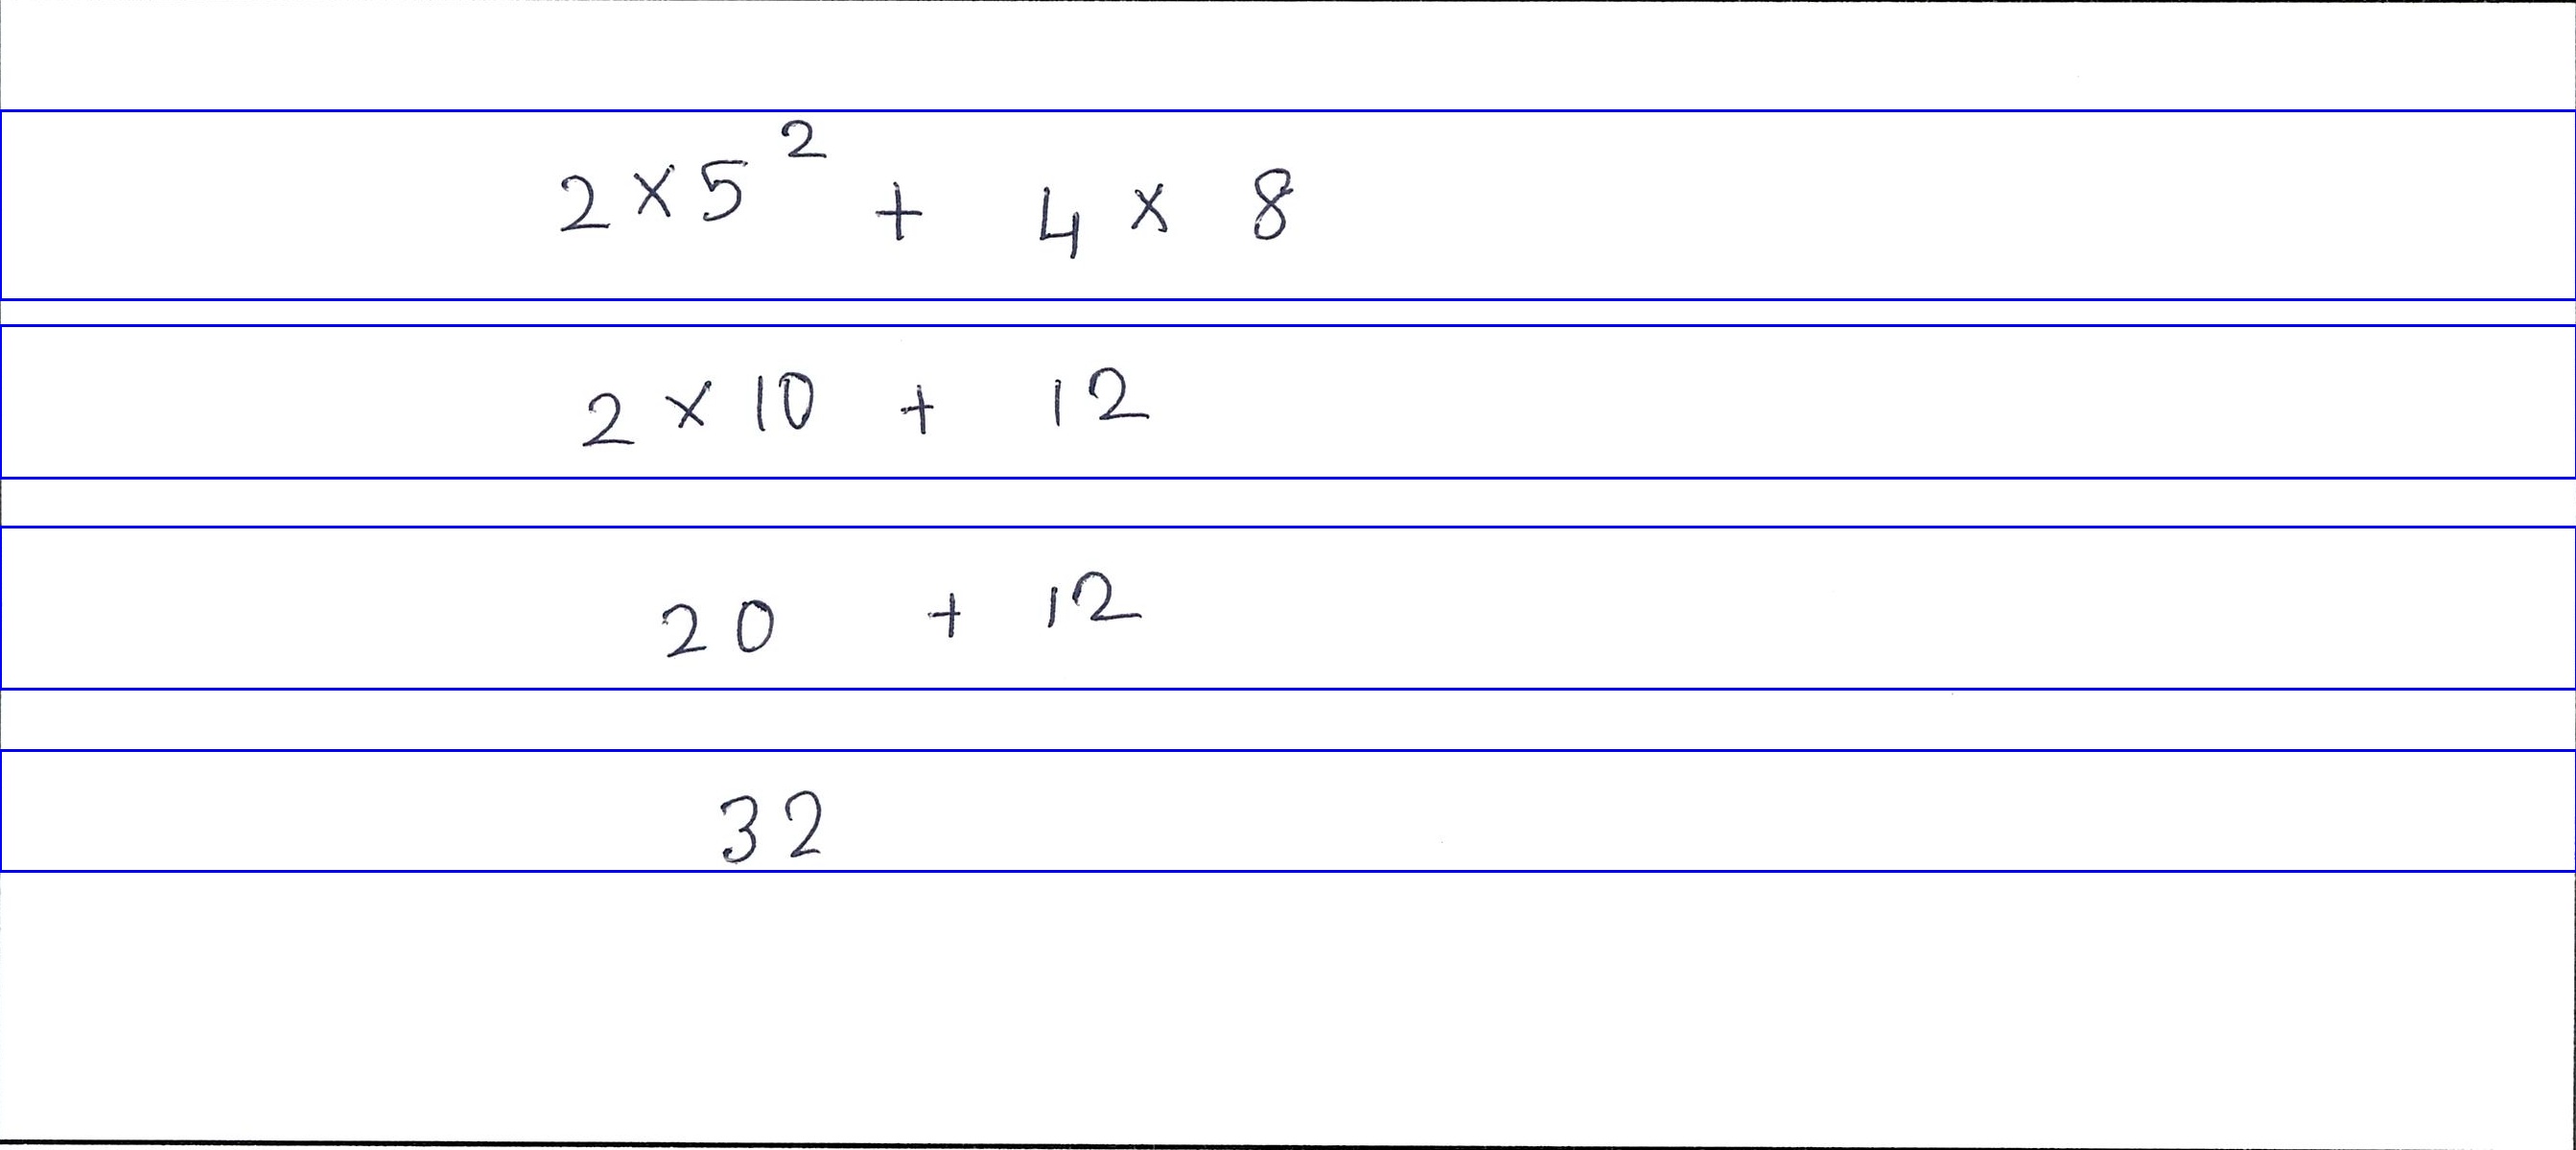 2 × 5² + 4 × 8
2 × 10 + 12
20 + 12
32